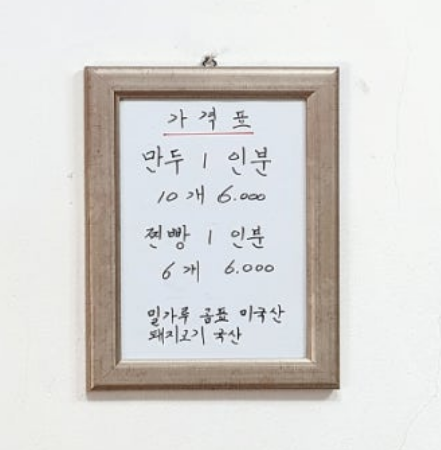 가격표
만두 1 인분
10개 6.000
찐빵 1 인분
6개 6.000
밀가루 곰표 미국산
돼지고기 국산